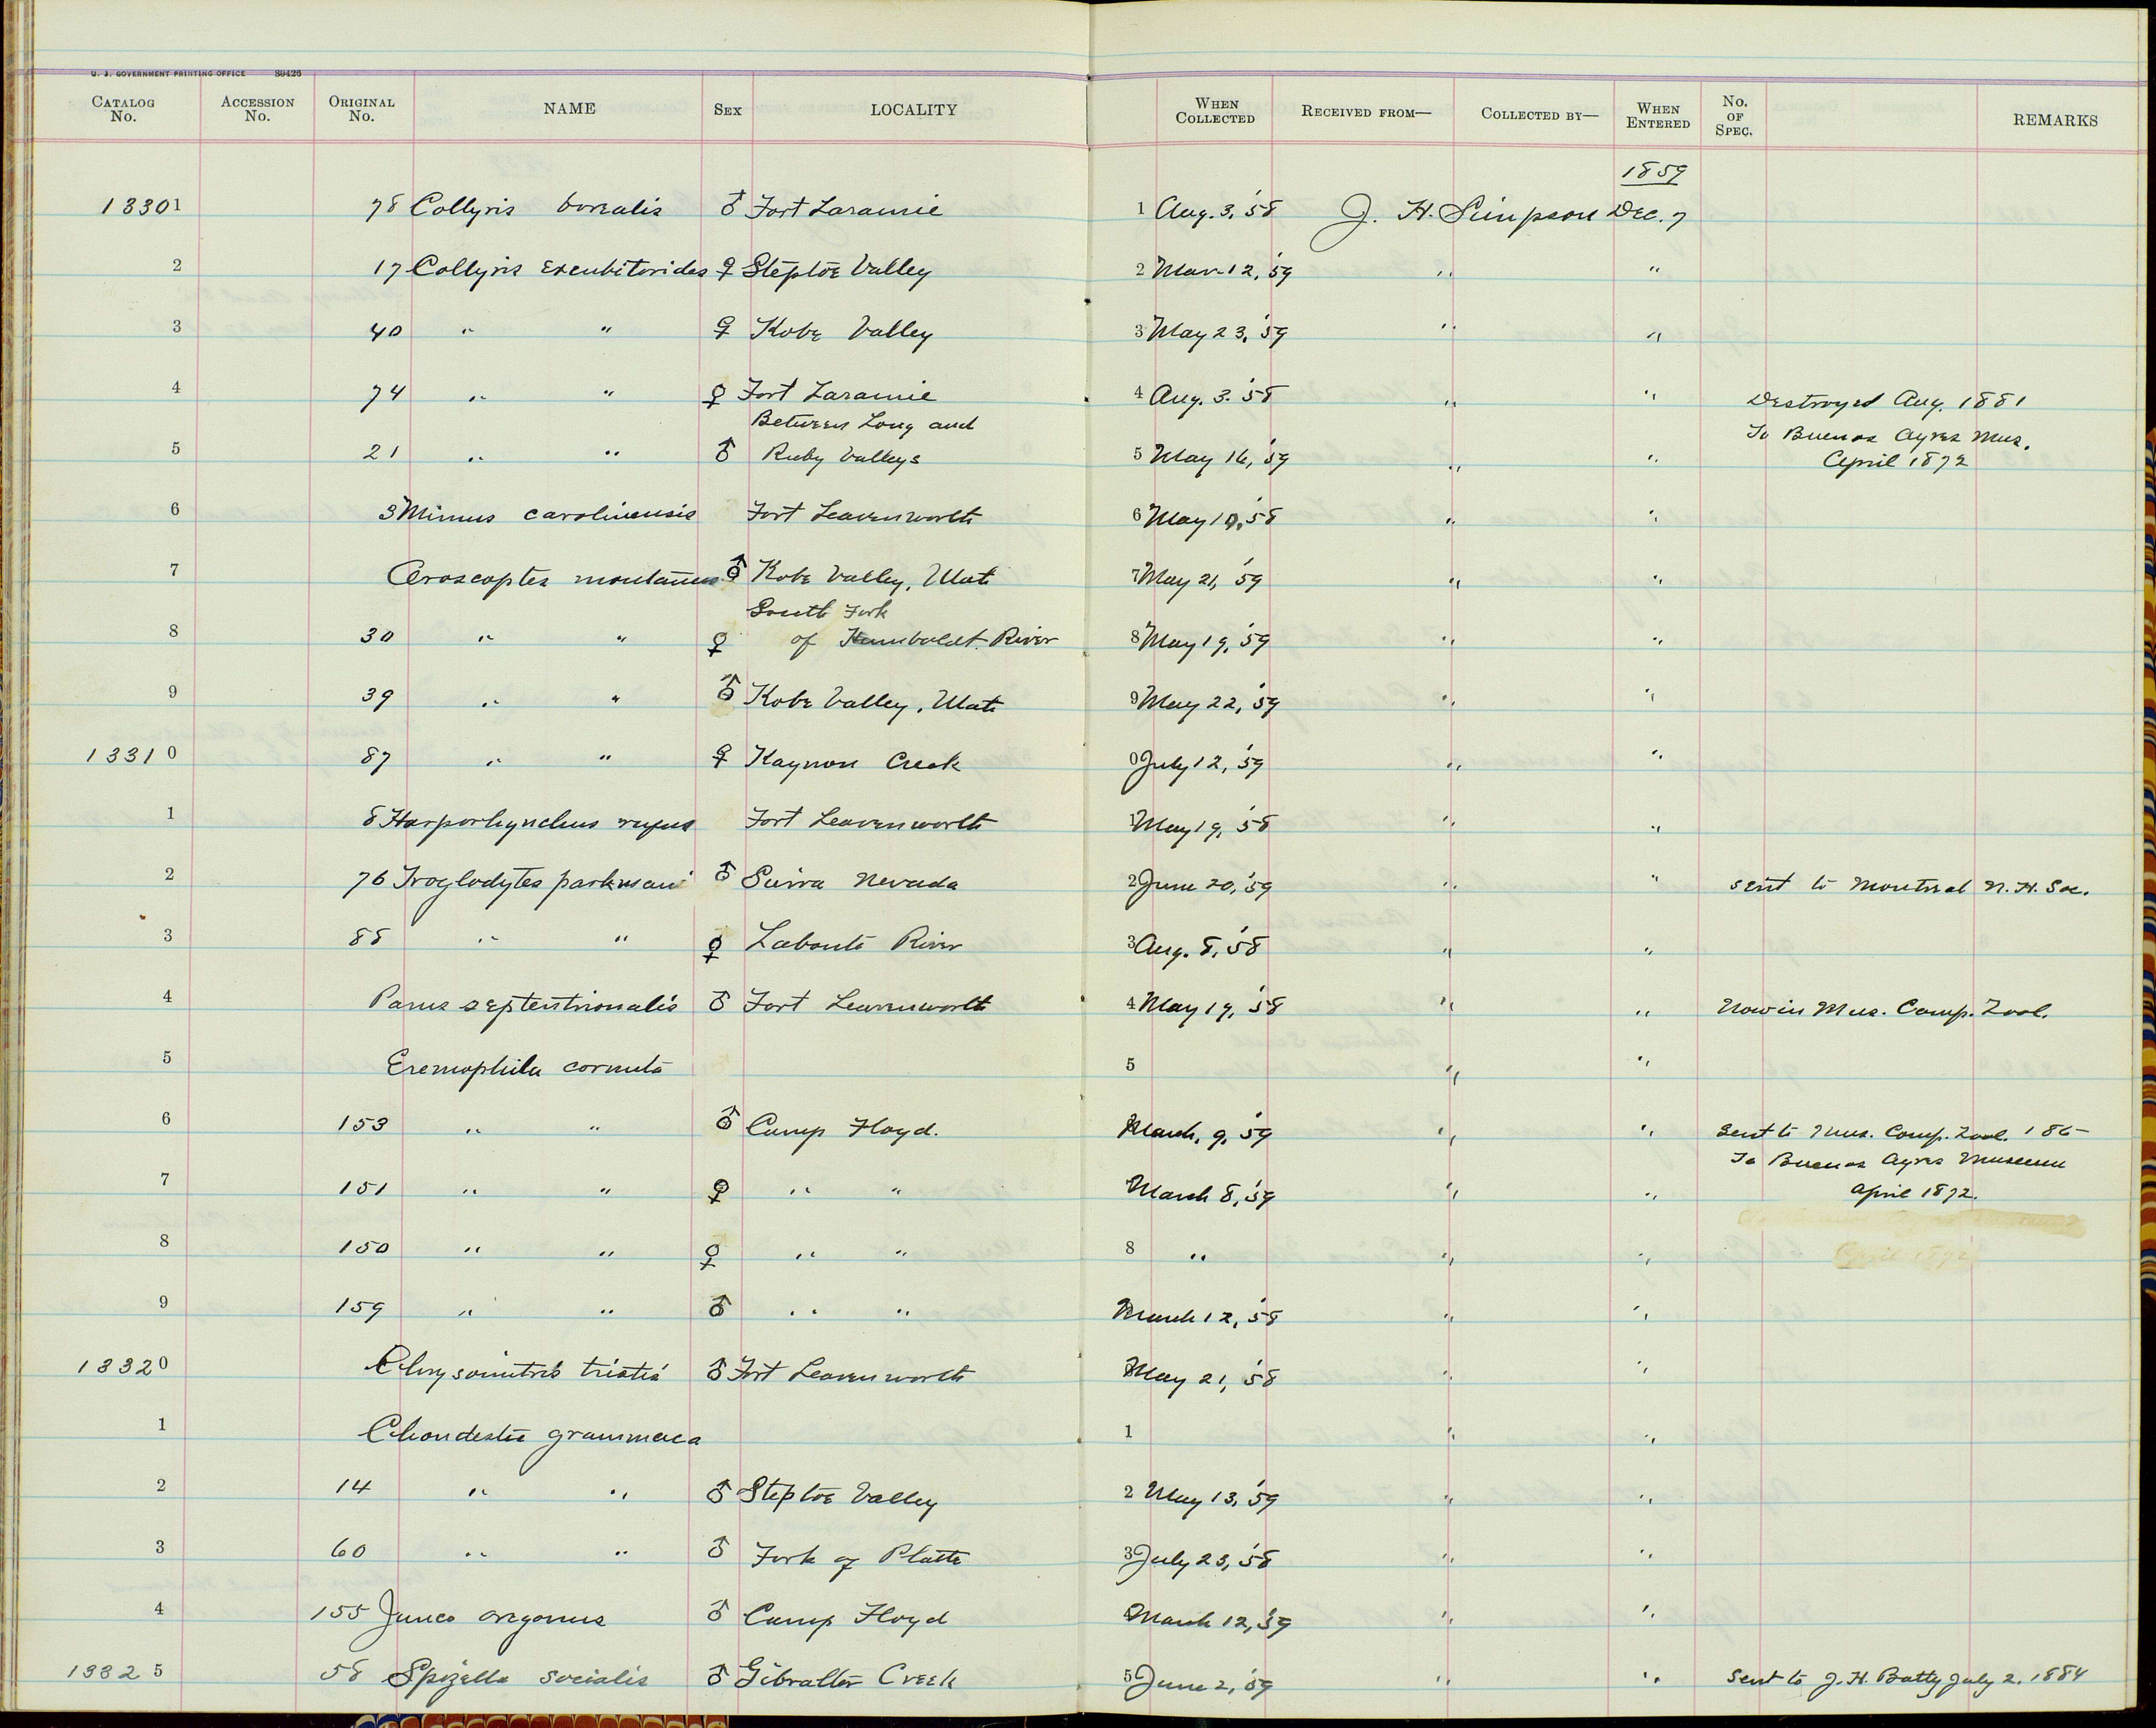 U. S. GOVERNMENT PRINTING OFFICE 89426
CATALOG No. ACCESSION No. ORIGINAL No. NAME SEX LOCALITY WHEN COLLECTED RECEIVED FROM— COLLECTED BY— WHEN ENTERED No. OF SPEC. REMARKS
1859
13301 78 Collyris borealis ♂ Fort Laramie 1 Aug. 3, '58 J. H. Simpson Dec. 7
2 17 Collyris excubitorides ♀ Steptoe Valley 2 Mar. 12, '59 " "
3 40 " " ♀ Kobe Valley 3 May 23, '59 " "
4 74 " " ♀ Fort Laramie 4 Aug. 3. '58 " " Destroyed Aug. 1881
Between Long and To Buenos Ayres Mus.
5 21 " " ♂ Ruby Valleys 5 May 16, '59 " " April 1872
6 3 Mimus carolinensis Fort Leavenworth 6 May 10, '58 " "
7 Oroscoptes montanus ♂ Kobe Valley, Utah 7 May 21, '59 " "
South Fork
8 30 " " ♀ of Humboldt River 8 May 19, '59 " "
9 39 " " ♂ Kobe Valley, Utah 9 May 22, '59 " "
13310 87 " " ♀ Kaynon Creek 0 July 12, '59 " "
1 8 Harporhynchus rufus Fort Leavenworth 1 May 19, '58 " "
2 76 Troglodytes parkmani ♂ Sierra Nevada 2 June 20, '59 " " sent to Montreal N. H. Soc.
3 88 " " ♀ Labonte River 3 Aug. 8, '58 " "
4 Parus septentrionalis ♂ Fort Leavenworth 4 May 19, '58 " " Now in Mus. Comp. Zool.
5 Eremophila cornuta 5 " "
6 153 " " ♂ Camp Floyd. March, 9, '59 " " Sent to Mus. Comp. Zool. 186-
To Buenos Ayres Museum
7 151 " " ♀ " " March 8, '59 " " April 1872.
8 150 " " ♀ " " 8 " " " April 1872
9 159 " " ♂ " " March 12, '58 " "
13320 Chrysomitris tristis ♂ Fort Leavenworth May 21, '58 " "
1 Chondestes grammaca 1 " "
2 14 " " ♂ Steptoe Valley 2 May 13, '59 " "
3 60 " " ♂ Fork of Platte 3 July 23, '58 " "
4 155 Junco oregonus ♂ Camp Floyd March 12, '59 " "
13325 58 Spizella socialis ♂ Gibralter Creek 5 June 2, '59 " " Sent to J. H. Batty July 2, 1884